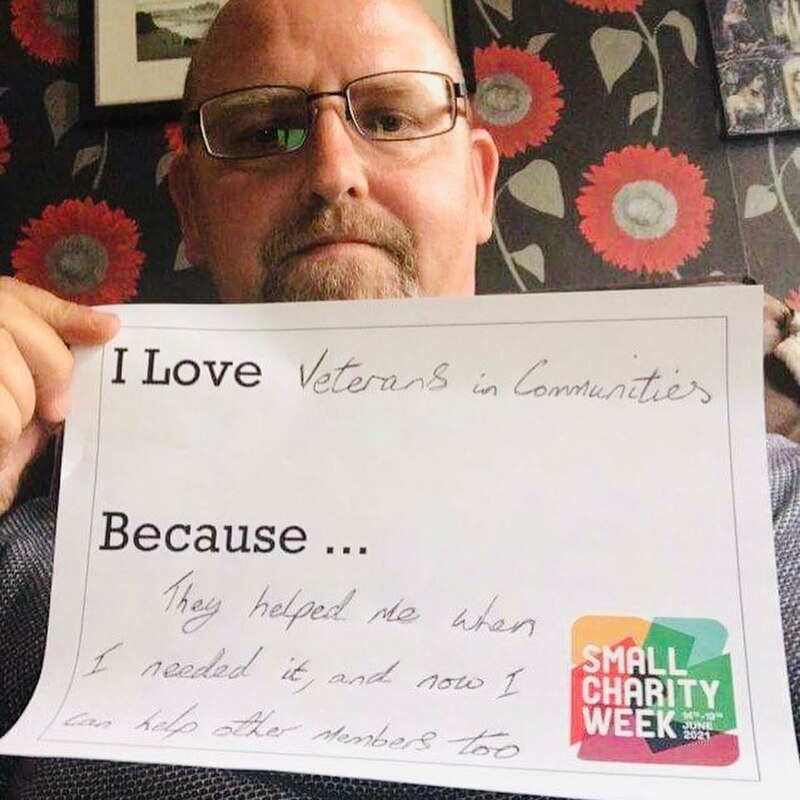 I Love Veterans in Communities
Because ...
They helped me when
I needed it, and now I
can help other members too
SMALL
CHARITY
WEEK
14TH-19TH
JUNE
2021